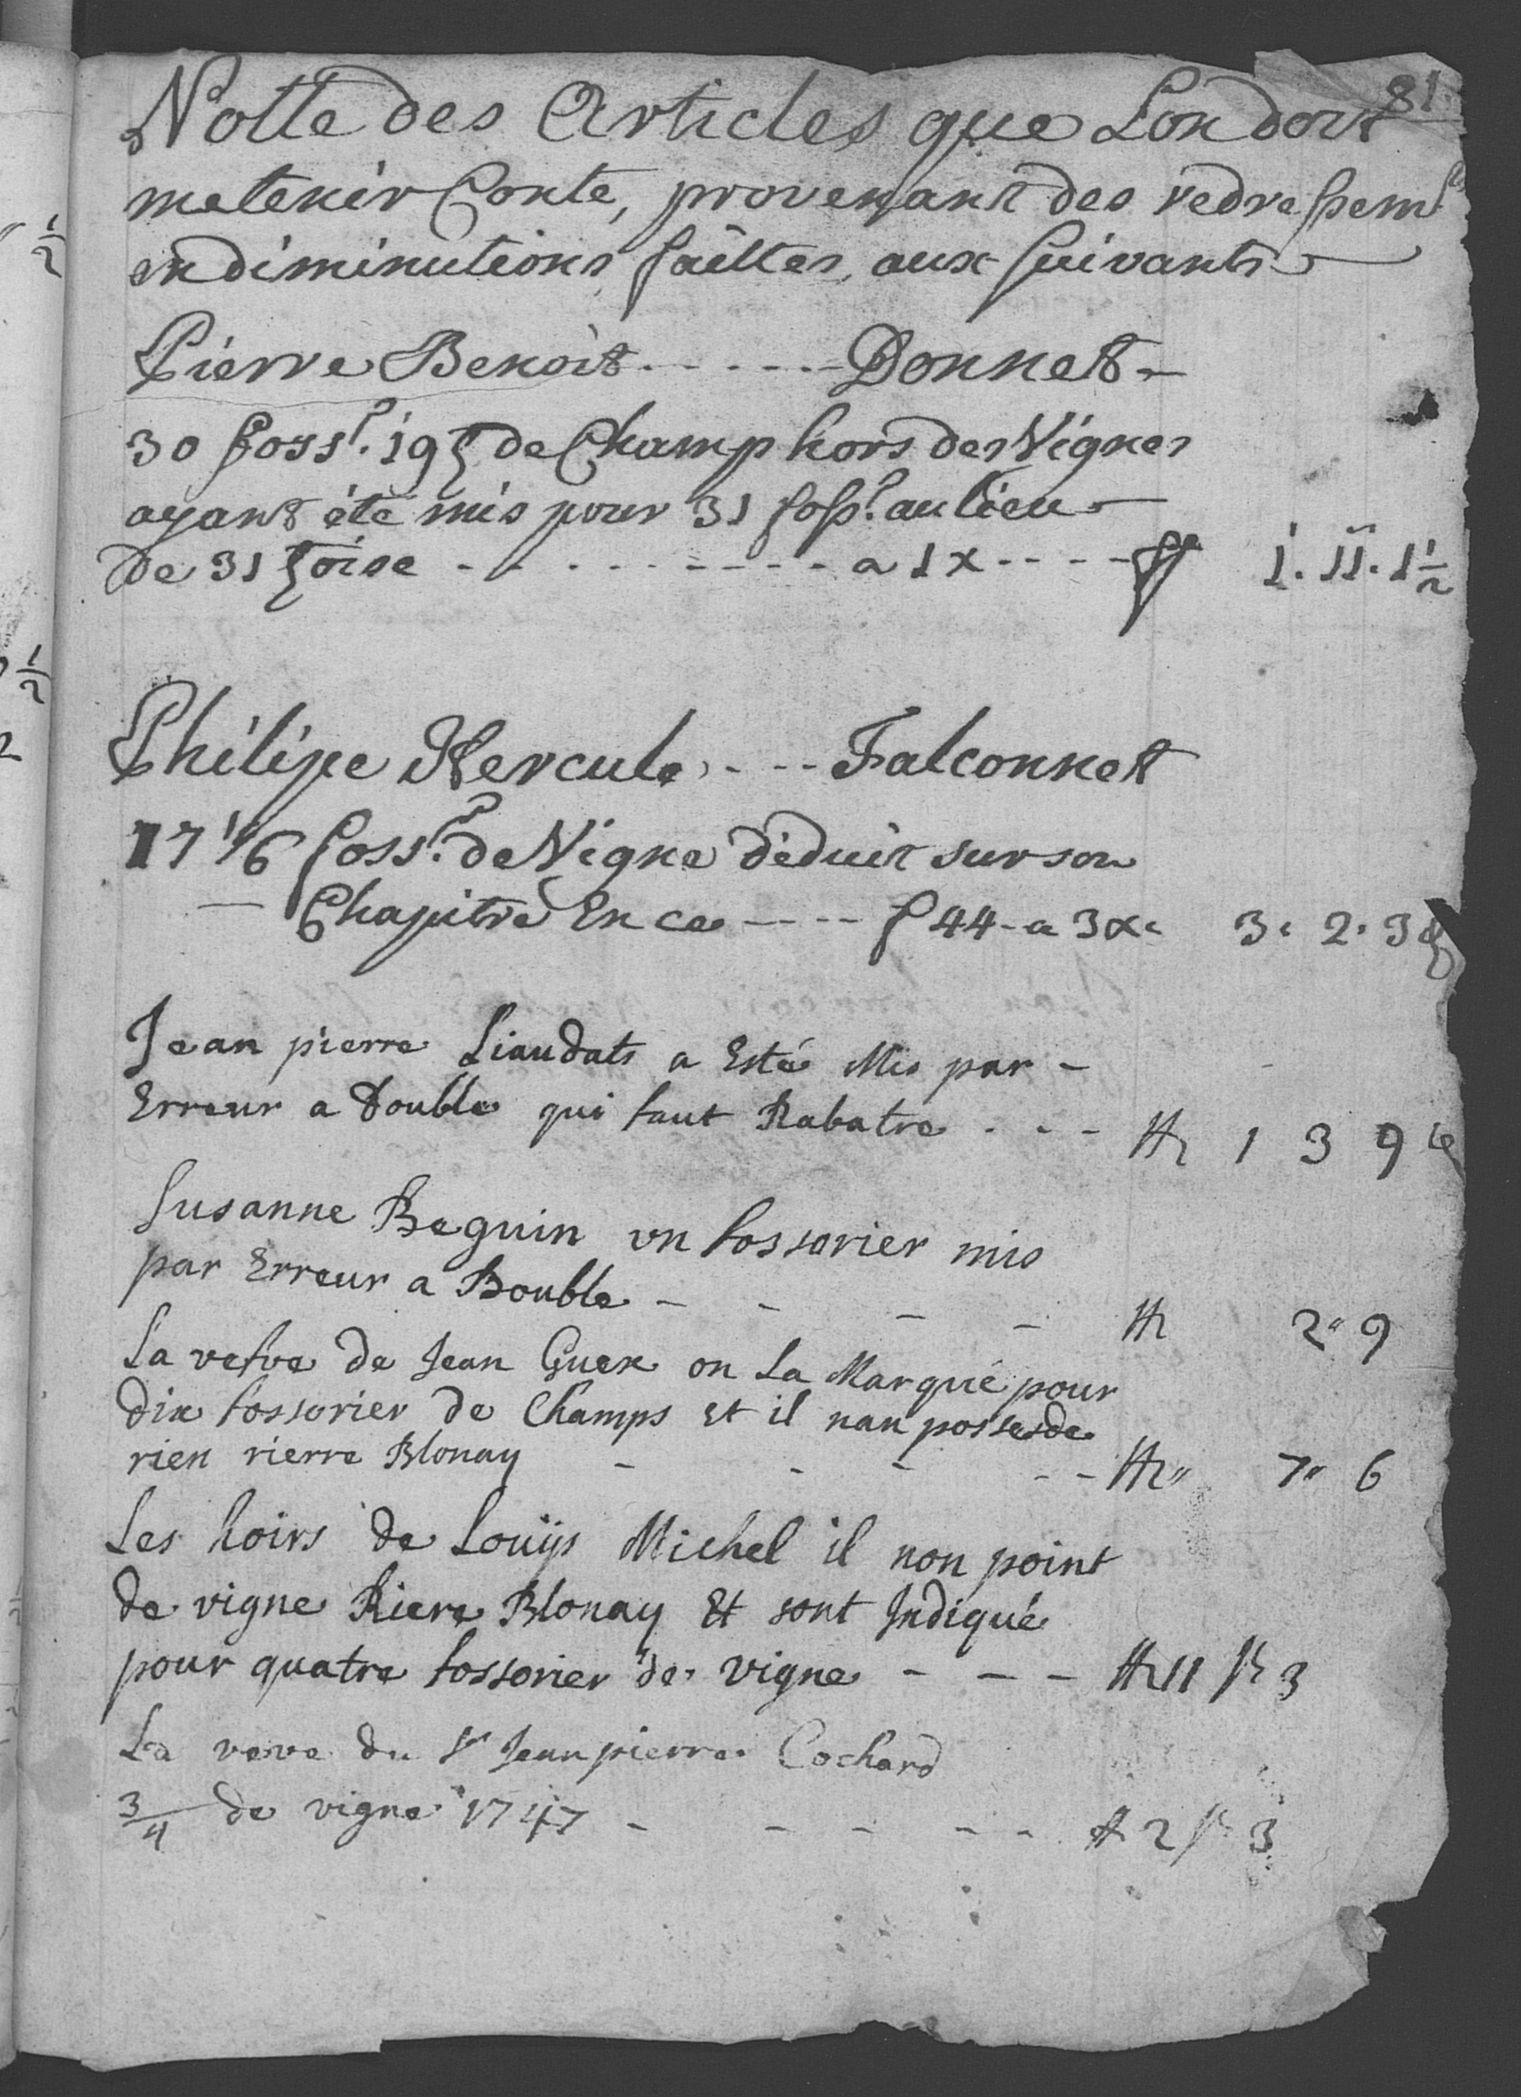 81
Notte des Articles que Lon doit
me tenir Conte, provenant des redressemts
en diminutions faittes aux suivants
Pierre Benoit - - - - - Donnet -
30 foss.r 19 t de Champ hors des Vignes
ayant été mis pour 31 foss.r au lieu -
de 31 toise - - - - - - - - - a 1 x - - - - ff 1. 11. 1 1/2
Philipe Hercule - - - Falconnet
17 1/6 foss.r de Vigne déduit sur son
- Chapitre En ce - - - - f 44 - a 3 x. 3. 2. 3
Jean pierre Liaudats a Esté Mis par -
Erreur a Double qui faut Rabatre - - - ff 1 3 9
Susanne Beguin un fossorier mis
par Erreur a Double - - - - ff 2" 9
La vefve de Jean Guex on La Marqué pour
dix fossorier de Champs et il nan possesde
rien rierre Blonay - - - - - ff" 7" 6
Les hoirs de Louijs Michel il non point
de vigne Riere Blonay Et sont Indiqué
pour quatre fossorier de vigne - - - ff 11 ß 3
La veve du Sr Jean pierre Cochard
3/4 de vigne 1747 - - - - - ff 2 ß 3